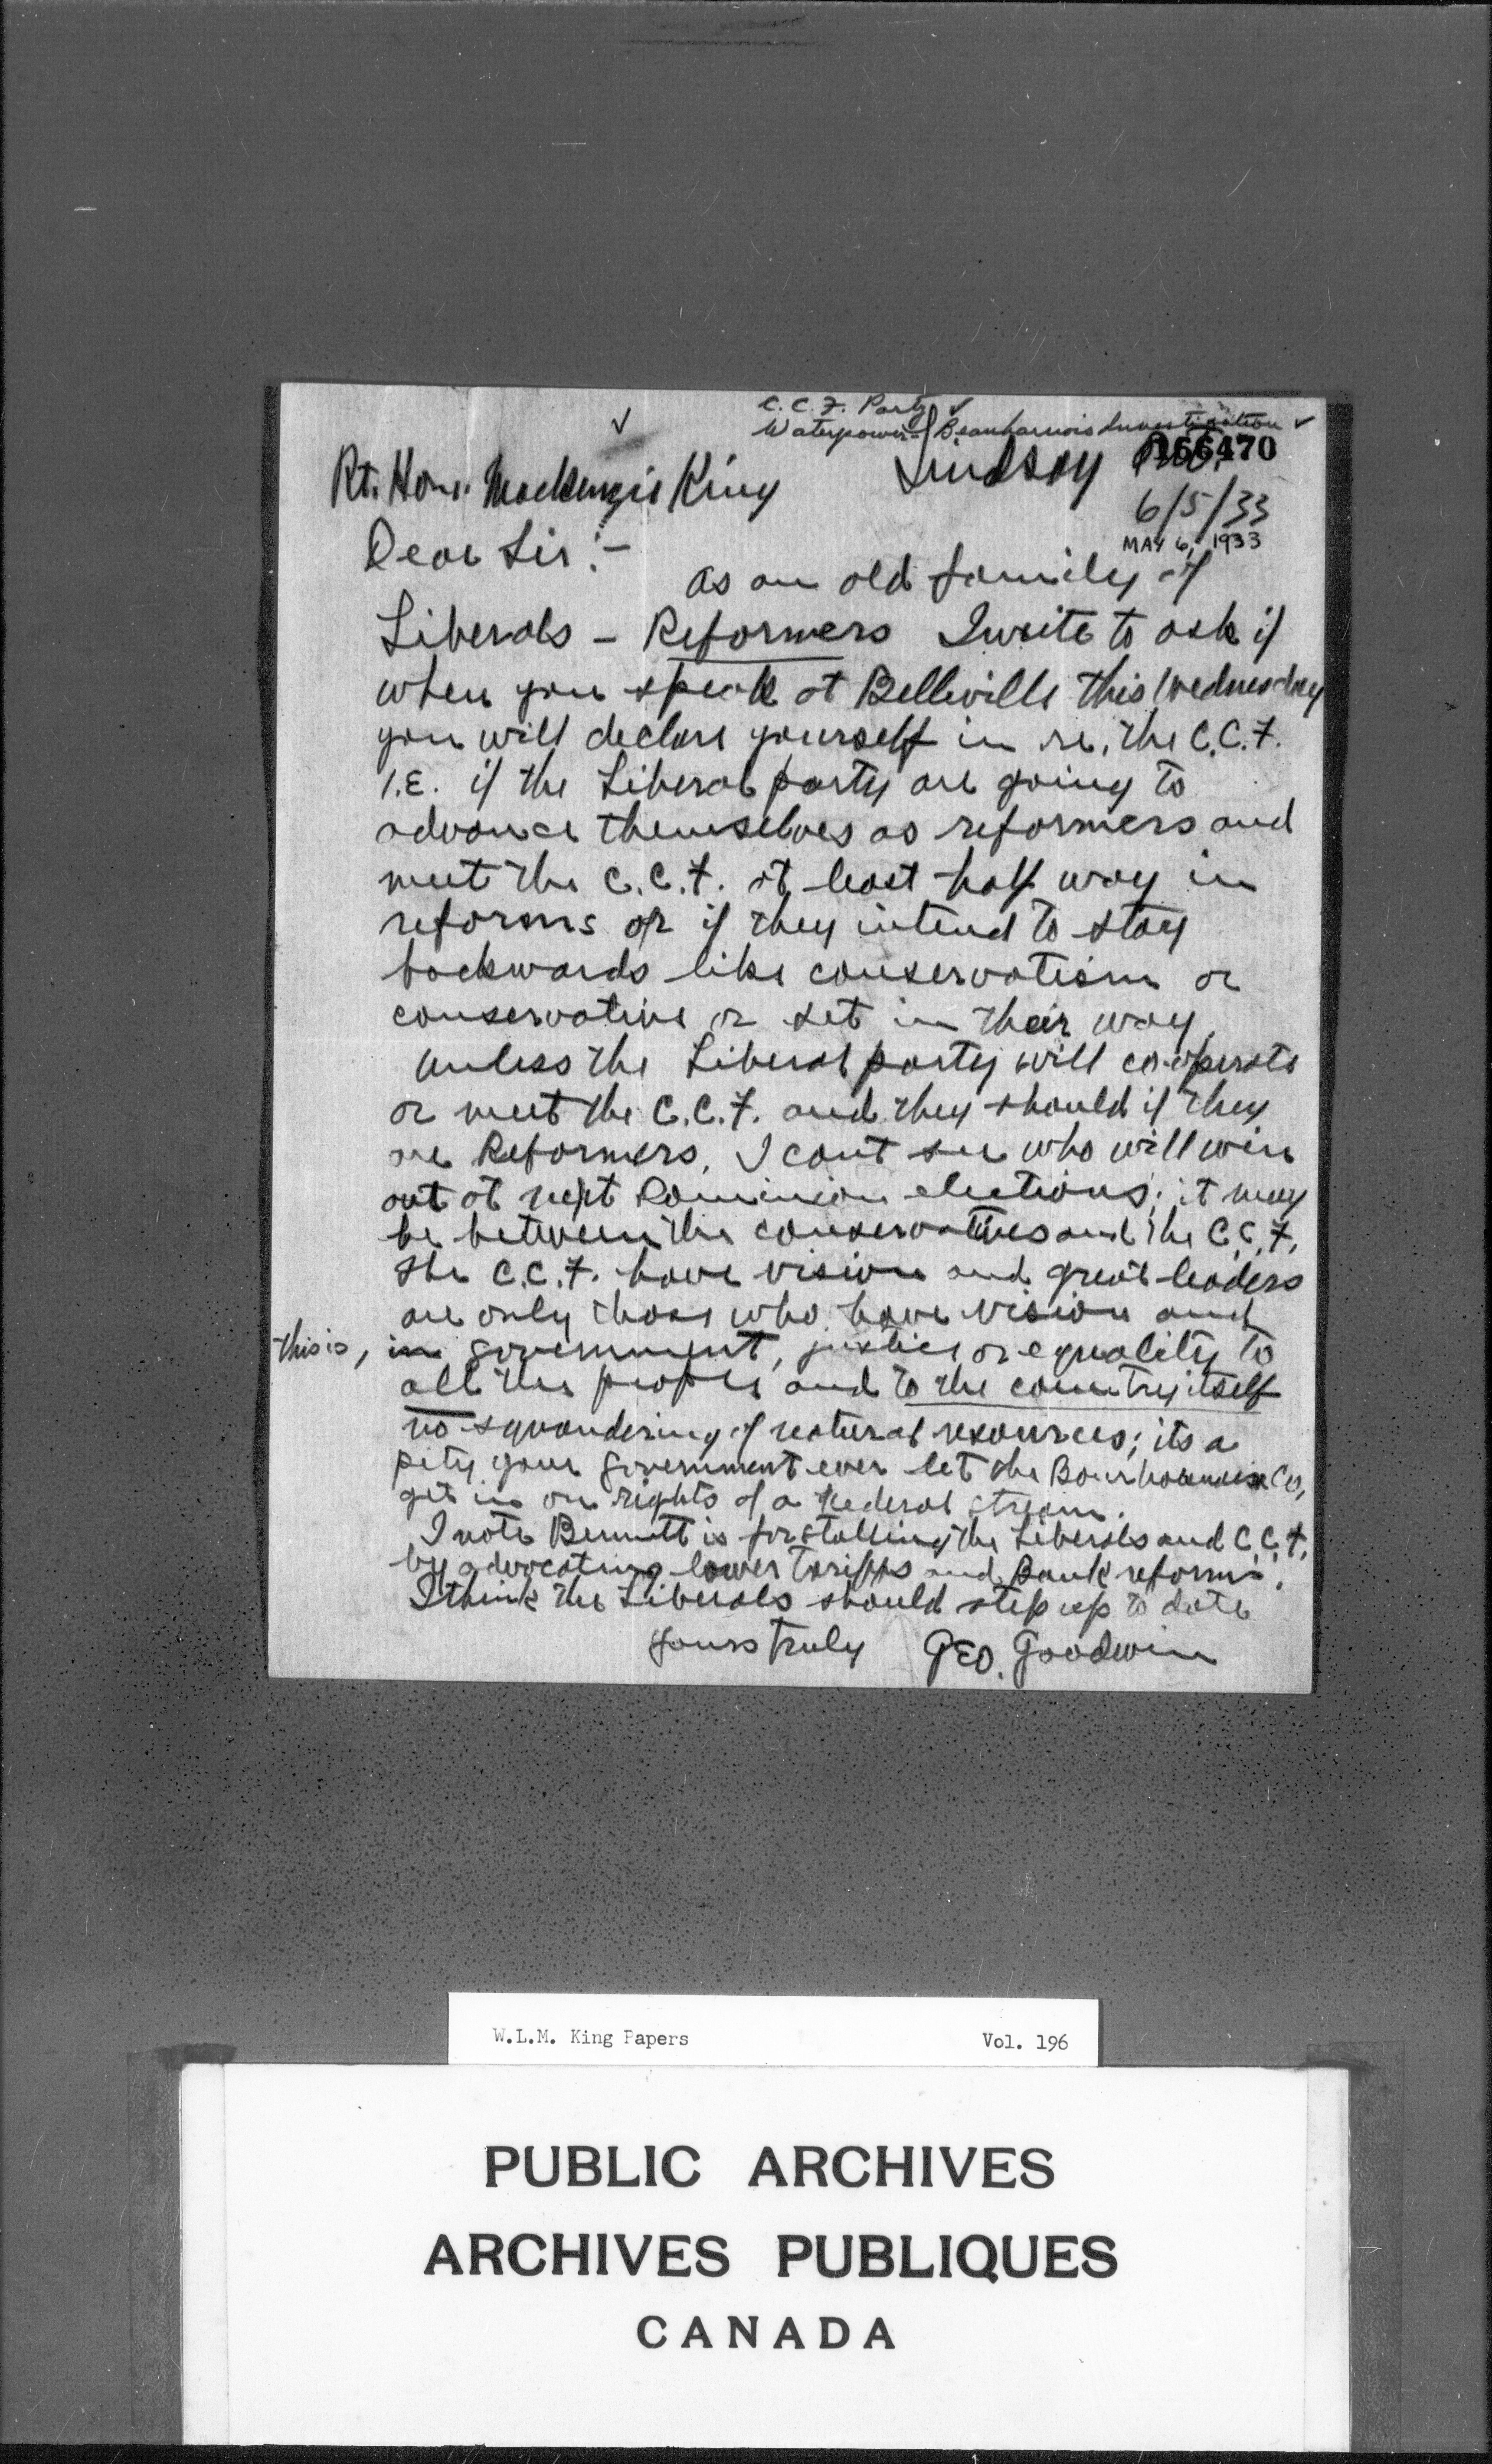 C.C.F. Party ✓
Waterpower - Beauharnois Investigation ✓
✓
166470
Lindsay Ont.
Rt. Hon. Mackenzie King
6/5/33
MAY 6, 1933
Dear Sir:-
as an old family of
Liberals - Reformers I write to ask if
when you speak at Belleville this Wednesday
you will declare yourself in re, the C.C.F.
I.E. if the Liberal party are going to
advance themselves as reformers and
meet the C.C.F. at least half way in
reforms or if they intend to stay
backwards like conservatism or
conservative or set in their way,
unless the Liberal party will cooperate
or meet the C.C.F. and they should if they
are Reformers, I cant see who will win
out at next Dominion elections; it may
be between the conservatives and the C.C.F.
The C.C.F. have vision and great leaders
are only those who have vision and
this is, in government, justice or equality to
all the peoples and to the country itself
no squandering of natural resources; its a
pity your government ever let the Co,
get in on rights of a Federal stream.
I note Bennett is forstalling the Liberals and C.C.F.
by advocating lower tariffs and Bank reforms.
I think the Liberals should step up to date
yours truly GEO. Goodwin
W.L.M. King Papers Vol. 196
PUBLIC ARCHIVES
ARCHIVES PUBLIQUES
CANADA